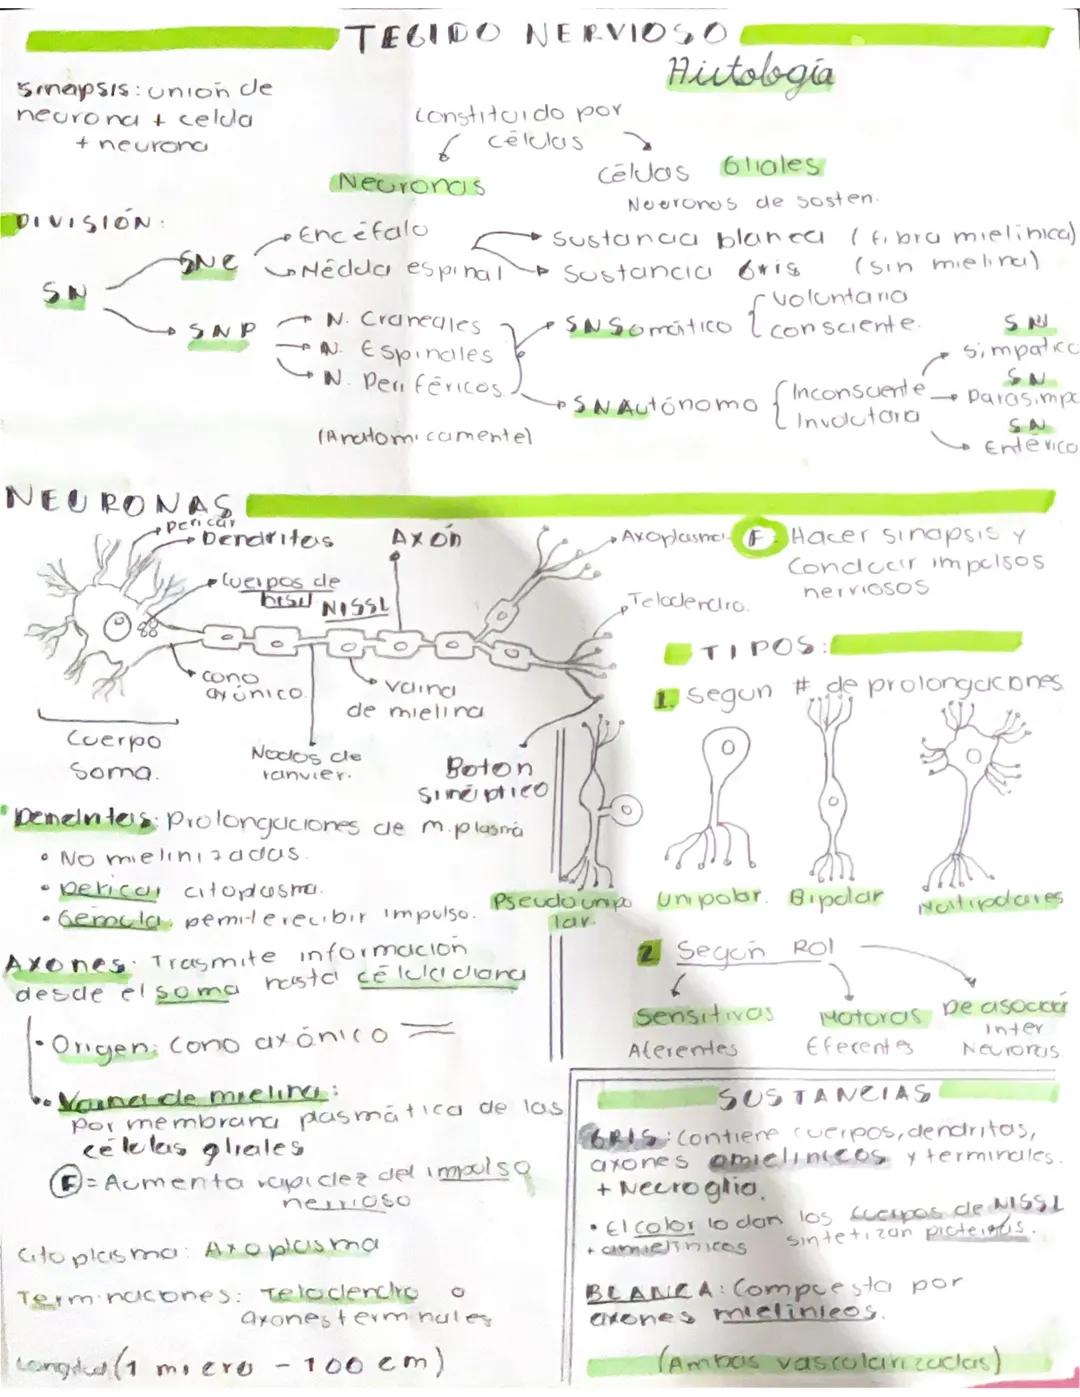 TEGIDO NERVIOSO
Histología
Sinapsis: unión de
neurona + celula
+ neurona
constituido por
células
Neuronas
células Gliales
Neuronas de sosten.
DIVISIÓN:
SN
SNC
Encéfalo
Médula espinal
Sustancia blanca (fibra mielinica)
Sustancia Gris (sin mielina)
SNP
N. Craneales
N. Espinales
N. Periféricos
(Anatomicamente)
SNSomático
voluntario
consciente.
SNAutónomo
Inconsciente
Involutara
SN
simpatico
SN
Parasimpa
SN
Entérico
NEURONAS
pericar
Dendritas
Axón
Axoplasma
F: Hacer sinapsis y
Conducir impulsos
nerviosos
cuerpos de
NISSL
Telodendro.
cono
axónico.
vaina
de mielina
Cuerpo
Soma.
Nodos de
ranvier.
Boton
sináptico
TIPOS:
1. Segun # de prolongaciones
Pseudounipo
lar.
Unipolar.
Bipolar
Multipolares
Prolongaciones de m.plasmá
• No mielinizadas.
• pericar citoplasma.
• Gemula, permite recibir impulso.
Axones: Trasmite información
desde el soma hasta célula diana
• Origen: cono axónico
• Vaina de mielina:
por membrana plasmática de las
células gliales
F = Aumenta rapidez del impulso
nervioso
Citoplasma: Axoplasma
Terminaciones: Telodendro o
axones terminales
Longitud (1 micro - 100 cm)
2 Según ROl
Sensitivas
Aferentes
Motoras
Eferentes
De asocia
inter
Neuronas
SUSTANCIAS
GRIS: Contiene cuerpos, dendritas,
axones amielinicos y terminales.
+ Neuroglia.
• El color lo dan los cuerpos de NISSL
+ amielinicos sintetizan proteinas.
BLANCA: Compuesta por
axones mielinicos.
(Ambas vascularizadas)